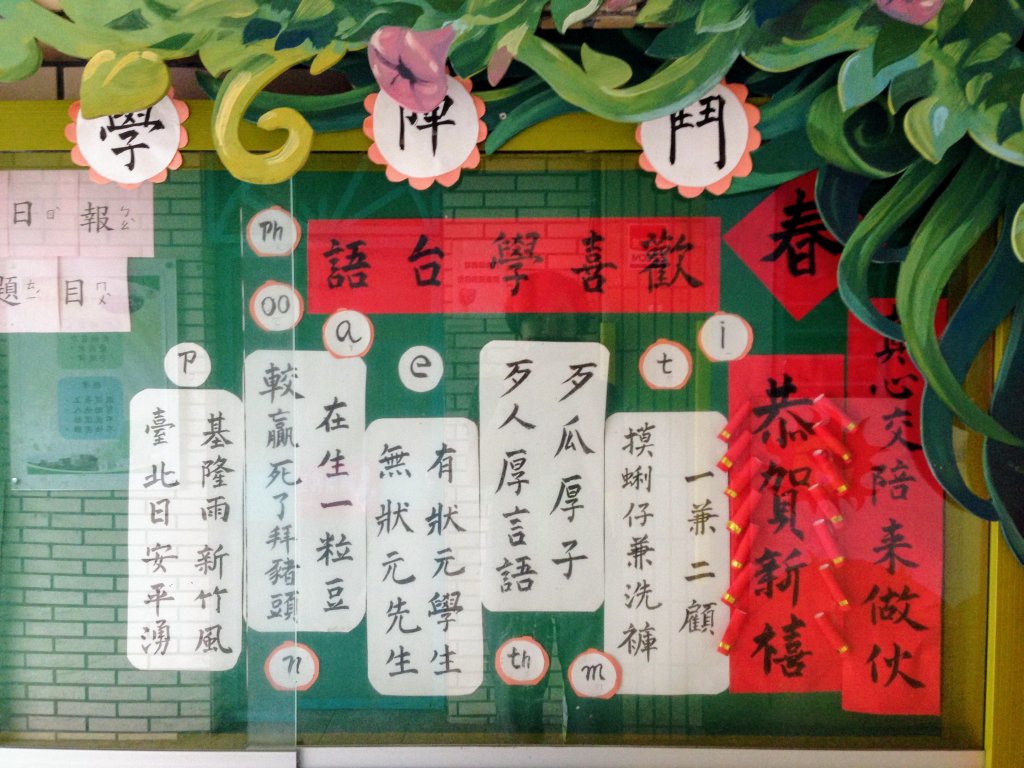 鬥陣學
歡喜學台語
春
真心交陪来做伙
恭賀新禧
一兼二顧
摸蜊仔兼洗褲
歹瓜厚子
歹人厚言語
有狀元學生
無狀元先生
在生一粒豆
較贏死了拜豬頭
基隆雨新竹風
臺北日安平湧
Ph
oo
a
P
e
t
i
n
th
m
日報
題目